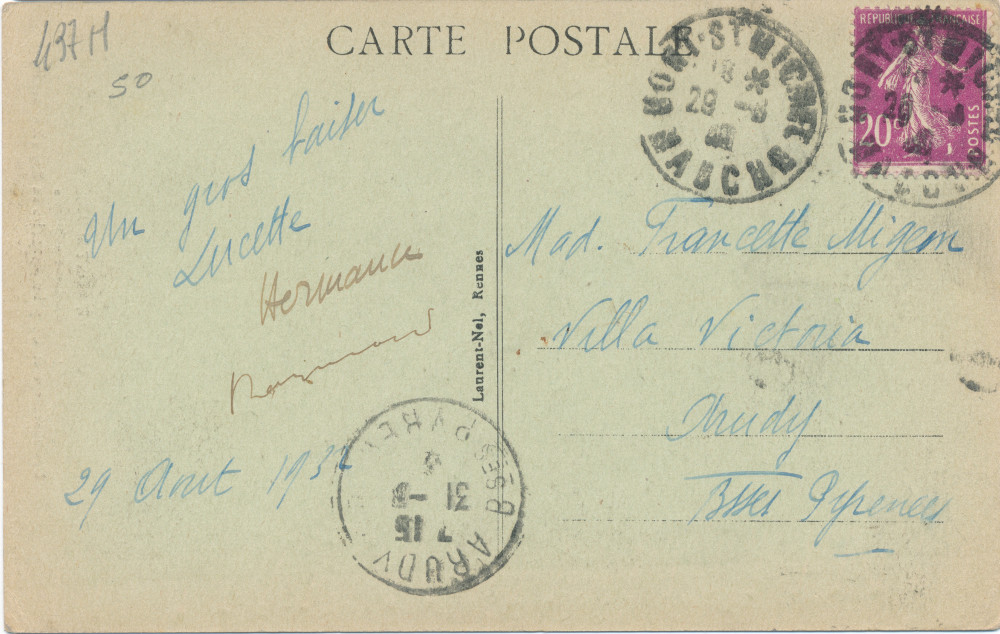 437 M
50
CARTE POSTALE
MONT-ST MICHEL
18 *
29 -8
MANCHE
REPUBLIQUE FRANÇAISE
20c
POSTES
Un gros baiser
Lucette
Hermann
Raymond
29 Aout 193
Laurent-Nel, Rennes
Mad. Francette Migem
Villa Victoria
Arudy
Bsses Pyrenees
ARUDY
BSES PYRE
31 -8
7 15